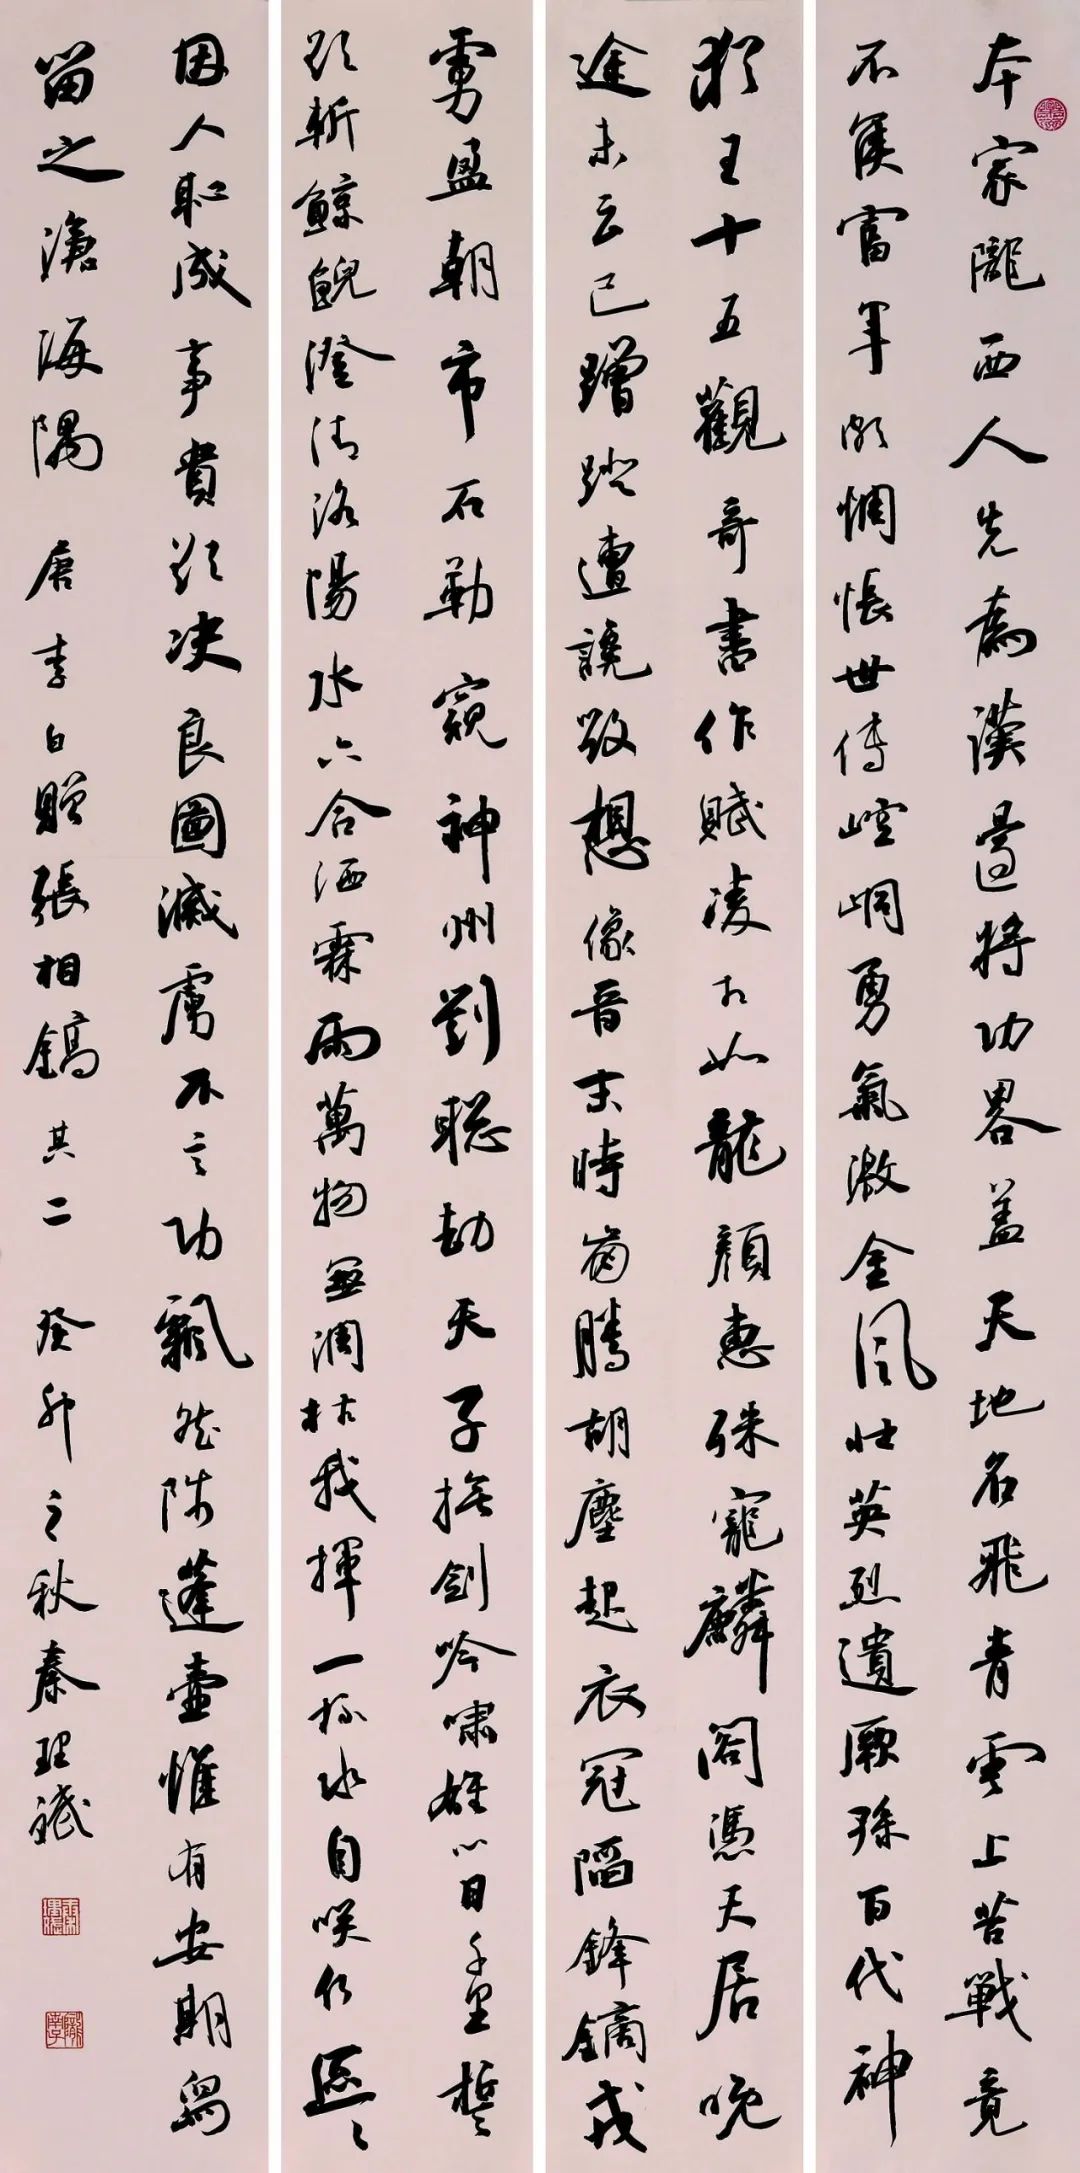 本家隴西人先為漢邊將功畧盖天地名飛青雲上苦戰竟
不侯富年頗惆悵世傳崆峒勇氣激金風壯英烈遺厥孫百代神
猶王十五觀奇書作賦凌相如龍顏惠殊寵麟閣憑天居晚
途未云已蹭蹬遭讒毀想像晉末時崩騰胡塵起衣冠陷鋒鏑戎
虜盈朝市石勒窺神州劉聰劫天子撫劍吟嘯雄心日千里誓
欲斬鯨鯢澄清洛陽水六合洒霖雨萬物無凋枯我揮一杯水自笑何區〻
因人恥成事貴欲決良圖滅虜不言功飄然陟蓬壺惟有安期舄
留之滄海隅 唐李白贈張相鎬其二 癸卯之秋秦理斌